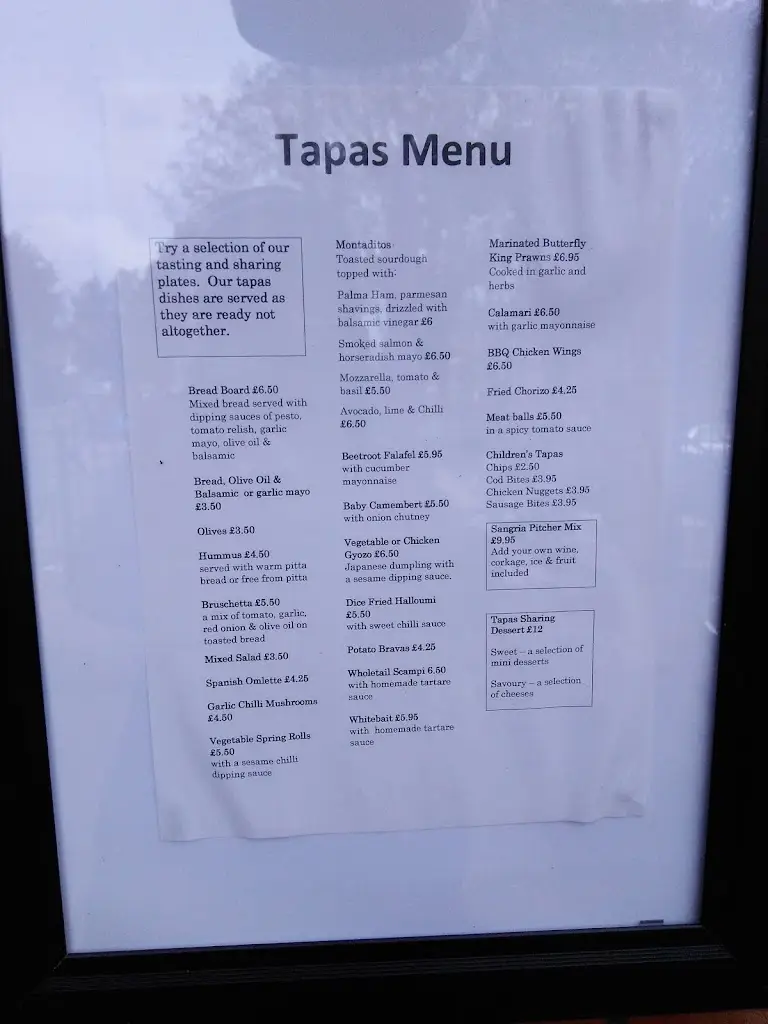 Tapas Menu
Try a selection of our
tasting and sharing
plates. Our tapas
dishes are served as
they are ready not
altogether.
Bread Board £6.50
Mixed bread served with
dipping sauces of pesto,
tomato relish, garlic
mayo, olive oil &
balsamic
Bread, Olive Oil &
Balsamic or garlic mayo
£3.50
Olives £3.50
Hummus £4.50
served with warm pitta
bread or free from pitta
Bruschetta £5.50
a mix of tomato, garlic,
red onion & olive oil on
toasted bread
Mixed Salad £3.50
Spanish Omlette £4.25
Garlic Chilli Mushrooms
£4.50
Vegetable Spring Rolls
£5.50
with a sesame chilli
dipping sauce
Montaditos
Toasted sourdough
topped with:
Palma Ham, parmesan
shavings, drizzled with
balsamic vinegar £6
Smoked salmon &
horseradish mayo £6.50
Mozzarella, tomato &
basil £5.50
Avocado, lime & Chilli
£6.50
Beetroot Falafel £5.95
with cucumber
mayonnaise
Baby Camembert £5.50
with onion chutney
Vegetable or Chicken
Gyozo £6.50
Japanese dumpling with
a sesame dipping sauce.
Dice Fried Halloumi
£5.50
with sweet chilli sauce
Potato Bravas £4.25
Wholetail Scampi 6.50
with homemade tartare
sauce
Whitebait £5.95
with homemade tartare
sauce
Marinated Butterfly
King Prawns £6.95
Cooked in garlic and
herbs
Calamari £6.50
with garlic mayonnaise
BBQ Chicken Wings
£6.50
Fried Chorizo £4.25
Meat balls £5.50
in a spicy tomato sauce
Children's Tapas
Chips £2.50
Cod Bites £3.95
Chicken Nuggets £3.95
Sausage Bites £3.95
Sangria Pitcher Mix
£9.95
Add your own wine,
corkage, ice & fruit
included
Tapas Sharing
Dessert £12
Sweet – a selection of
mini desserts
Savoury – a selection
of cheeses